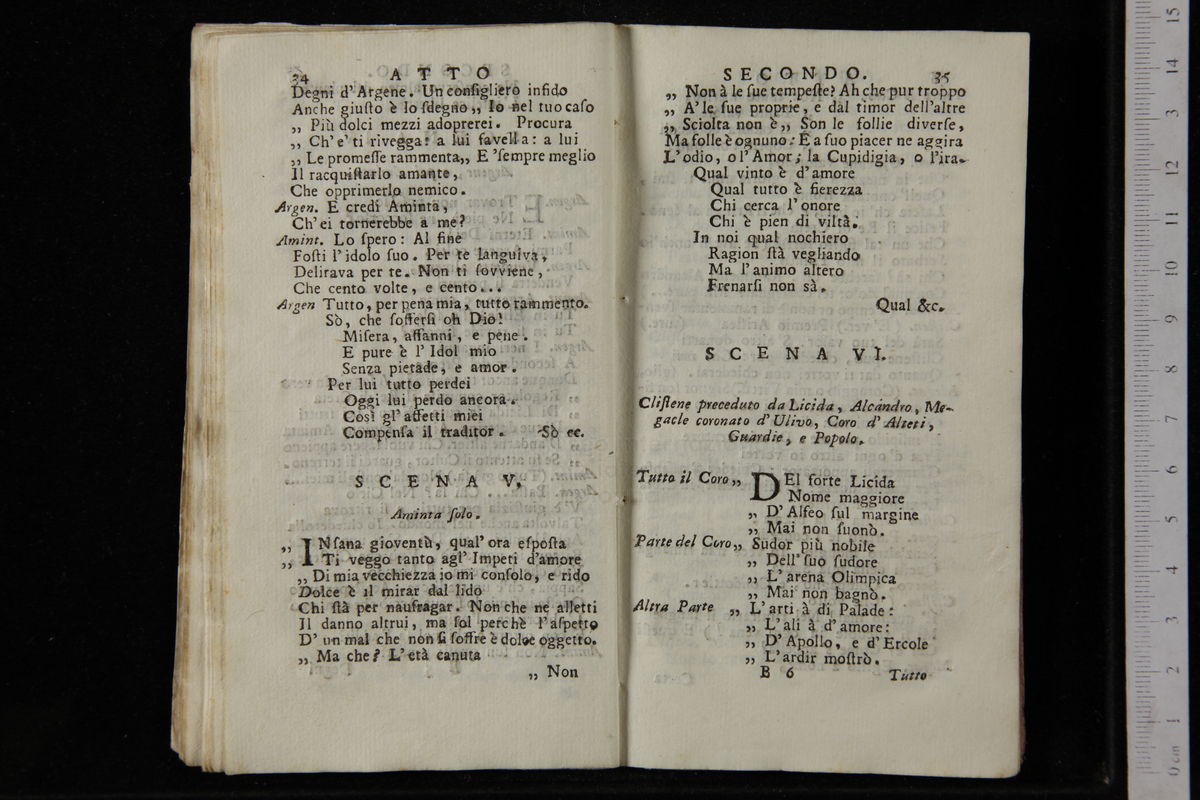 34 ATTO
Degni d'Argene. Un consigliero infido
Anche giuſto è lo ſdegno,, Io nel tuo caſo
,, Più dolci mezzi adoprerei. Procura
,, Ch'e' ti rivegga: a lui favella: a lui
,, Le promeſſe rammenta,, E 'ſempre meglio
Il racquiſtarlo amante,
Che opprimerlo nemico.
Argen. E credi Aminta,
Ch'ei tornerebbe a me?
Amint. Lo ſpero: Al fine
Foſti l'idolo ſuo. Per te languiva,
Delirava per te. Non ti ſovviene,
Che cento volte, e cento...
Argen Tutto, per pena mia, tutto rammento.
Sò, che ſofferſi oh Dio!
Miſera, affanni, e pene.
E pure è l'Idol mio
Senza pietade, e amor.
Per lui tutto perdei
Oggi lui perdo ancora.
Così gl'affetti miei
Compenſa il traditor. Sò ec.
SCENA V.
Aminta ſolo.
,, INſana gioventù, qual'ora eſpoſta
,, Ti veggo tanto agl'Impeti d'amore
,, Di mia vecchiezza io mi conſolo, e rido
Dolce è il mirar dal lido
Chi ſtà per naufragar. Non che ne alletti
Il danno altrui, ma ſol perchè l'aſpetto
D'un mal che non ſi ſoffre è dolce oggetto.
,, Ma che? L'età canuta
,, Non
SECONDO. 35
,, Non à le ſue tempeſte? Ah che pur troppo
,, A'le ſue proprie, e dal timor dell'altre
,, Sciolta non è,, Son le follie diverſe,
Ma folle è ognuno: E a ſuo piacer ne aggira
L'odio, o l'Amor; la Cupidigia, o l'ira.
Qual vinto è d'amore
Qual tutto è fierezza
Chi cerca l'onore
Chi è pien di viltà.
In noi qual nochiero
Ragion ſtà vegliando
Ma l'animo altero
Frenarſi non sà.
Qual &c.
SCENA VI.
Cliſtene preceduto da Licida, Alcandro, Me-
gacle coronato d'Ulivo, Coro d'Atleti,
Guardie, e Popolo.
Tutto il Coro,, DEl forte Licida
Nome maggiore
,, D'Alfeo ſul margine
,, Mai non ſuonò.
Parte del Coro,, Sudor più nobile
,, Dell'ſuo ſudore
,, L'arena Olimpica
,, Mai non bagnò.
Altra Parte ,, L'arti à di Palade:
,, L'ali à d'amore:
,, D'Apollo, e d'Ercole
,, L'ardir moſtrò.
B 6 Tutto
0 cm 1 2 3 4 5 6 7 8 9 10 11 12 13 14 15